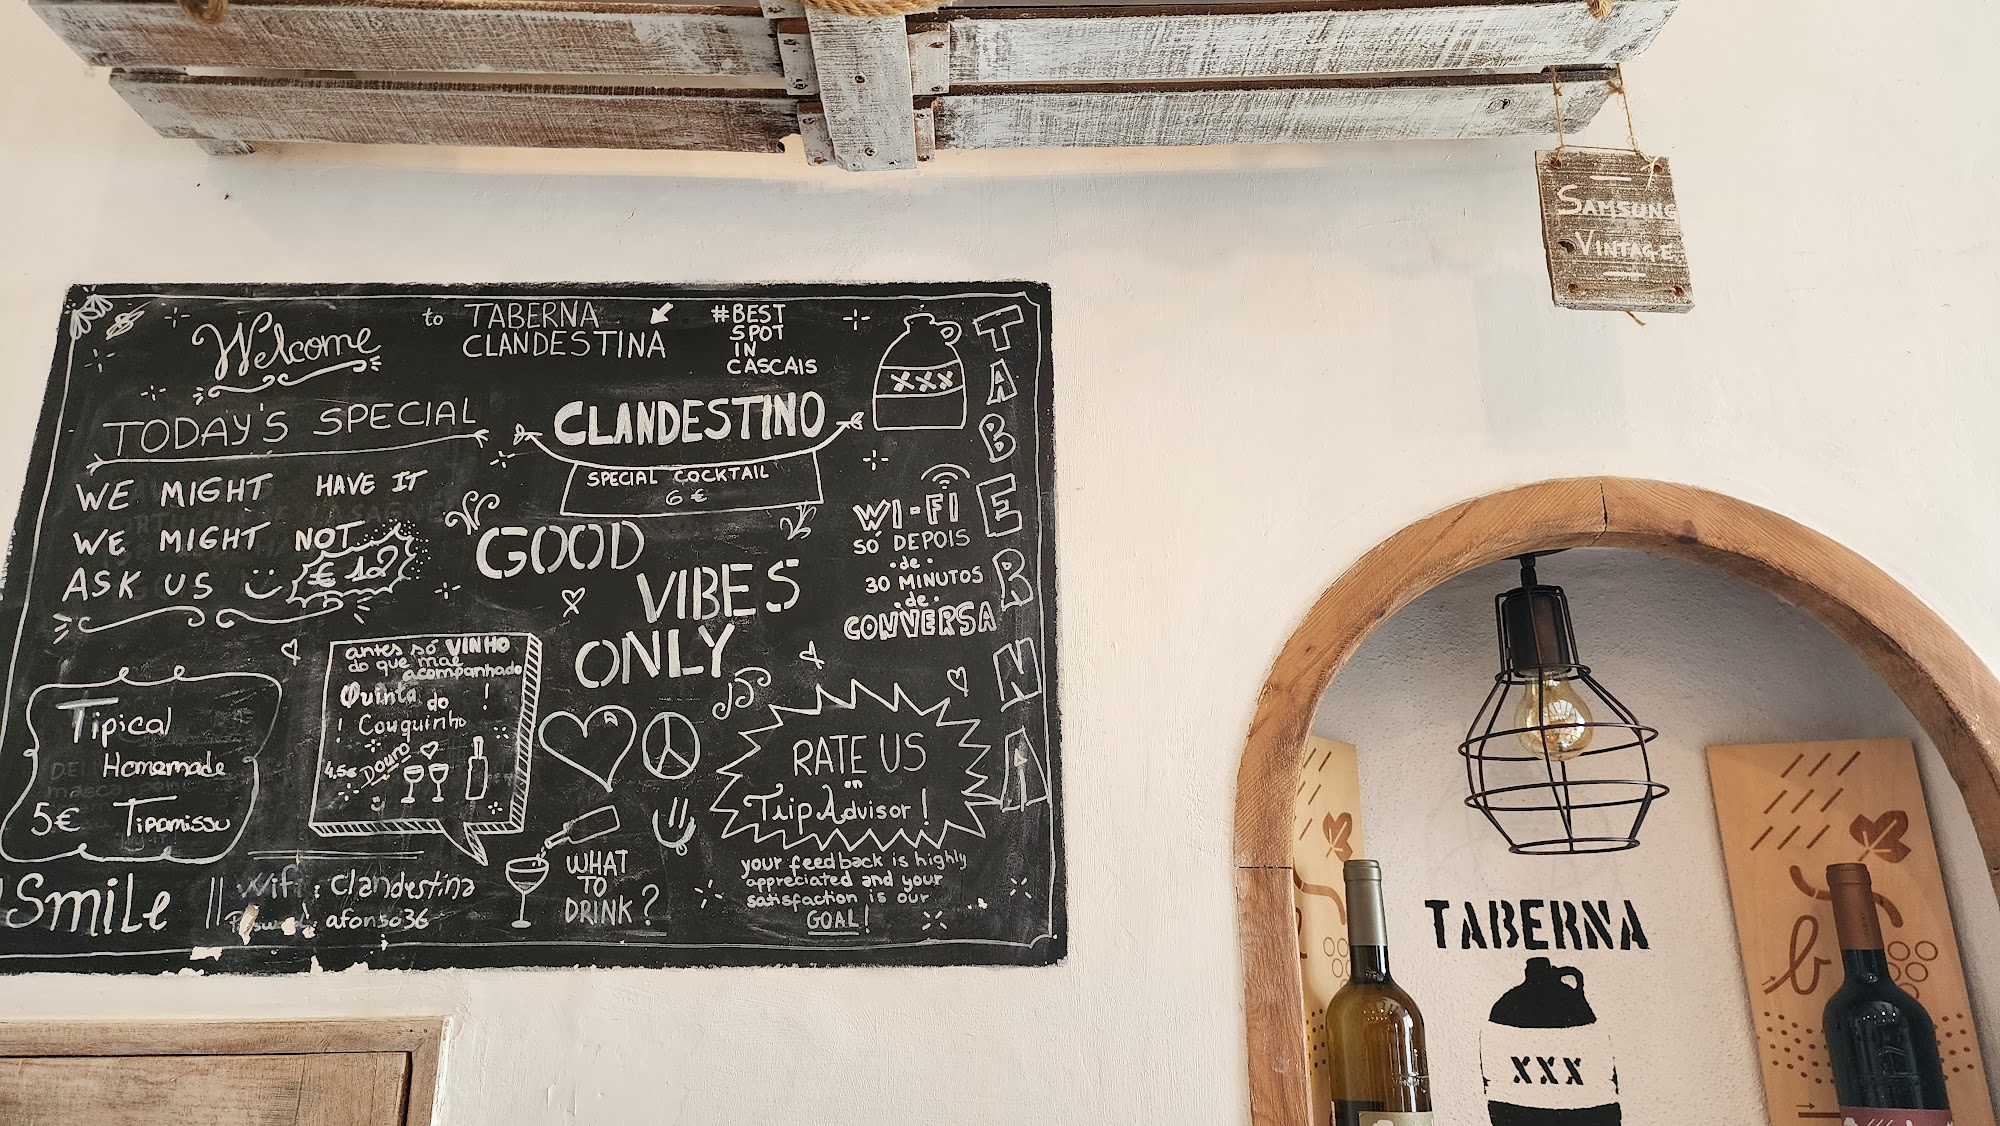 Welcome to TABERNA
CLANDESTINA
#BEST
SPOT
IN
CASCAIS
TABERNA
XXX
TODAY'S SPECIAL
WE MIGHT HAVE IT
WE MIGHT NOT...
ASK US
€ 12
CLANDESTINO
SPECIAL COCKTAIL
6 €
GOOD
VIBES
ONLY
WI-FI
SÓ DEPOIS
de
30 MINUTOS
de
CONVERSA
Tipical
Homemade
5€ Tiramissu
antes só VINHO
do que mal
acompanhado
Quinta do !
! Couquinho
4.5€ Douro
RATE US
on
TripAdvisor!
your feedback is highly
appreciated and your
satisfaction is our
GOAL!
WHAT
TO
DRINK?
Smile || Wifi : clandestina
afonso36
SAMSUNG
VINTAGE
TABERNA
XXX
b